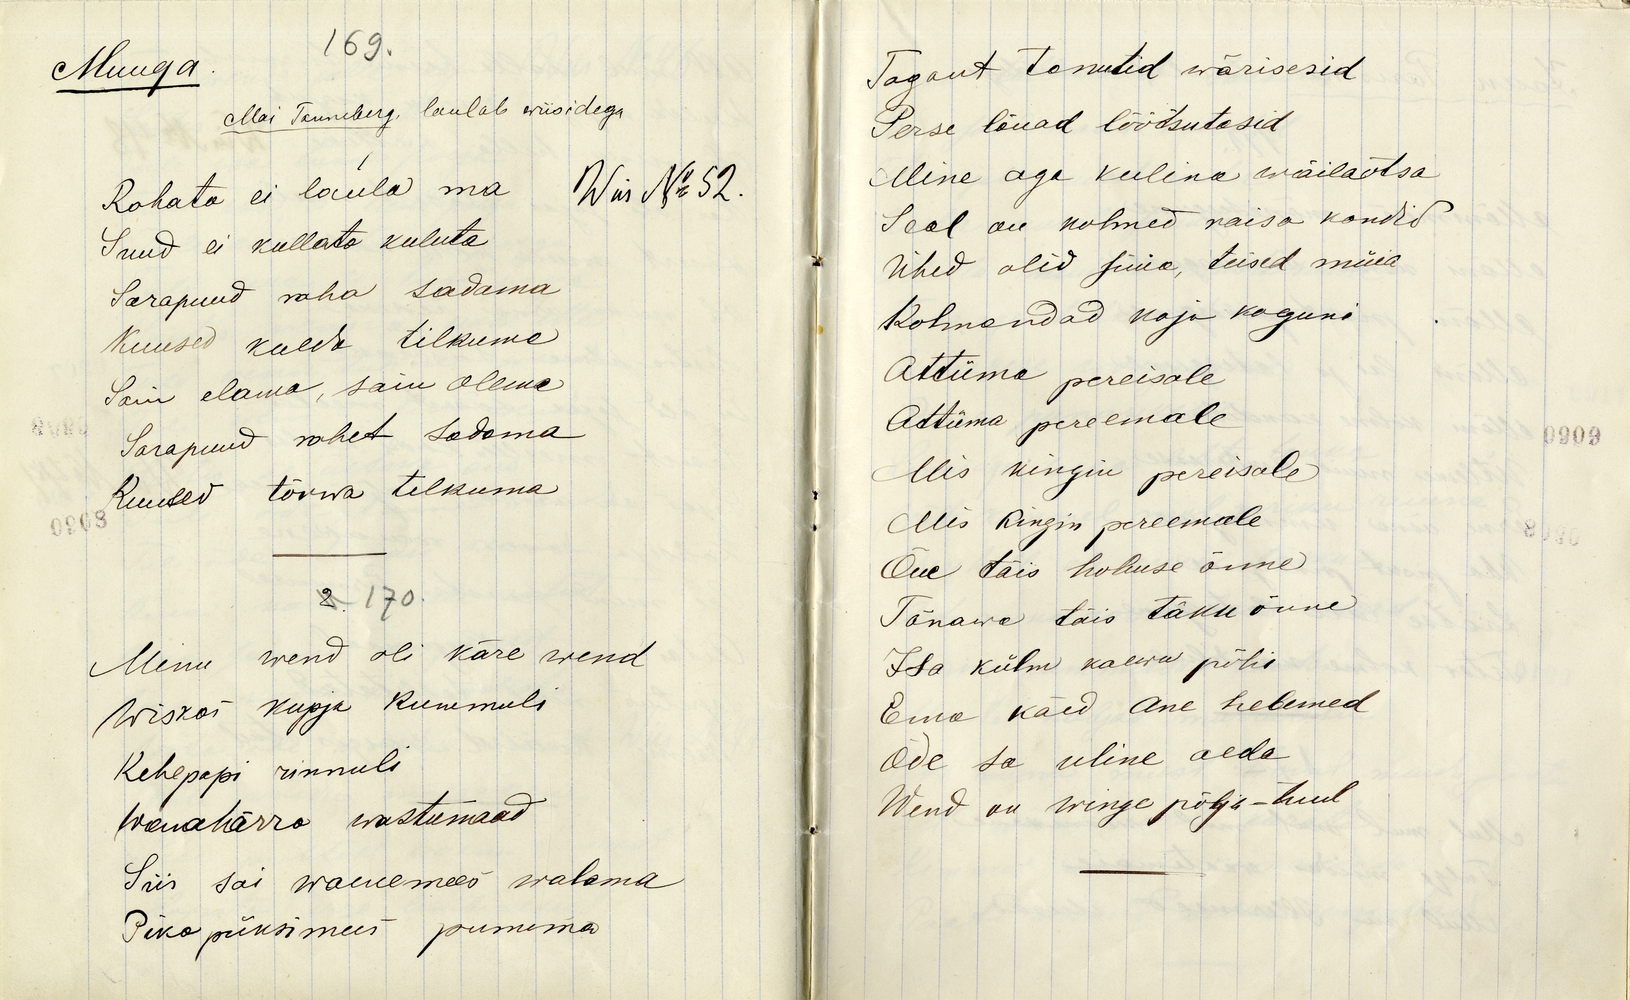 169.
Muuga.
Mai Tanneberg. laulab wiisidega
Rahata ei laula ma
Wiis № 52.
Suud ei kullata kuluta
Sarapuud raha sadama
Kuused kulda tilkuma
Sain elama, sain olema
Sarapuud rahet sadama
Kuused tõrwa tilkuma
2. 170.
Minu wend oli käre wend
Wiskas kupja kummuli
Kehepapi rinnuli
Wanahärra wastumaad
Siis sai waenemees walama
Pika püksimees pumema
Tagant tanutid wärisesid
Perse lõuad löötsutasid
Mine aga kulina wäilaotsa
Seal on kolmed raisa kandid
Ühed olid süüa, teised müia
Kolmandad koju koguni
Attüma pereisale
Attüma pereemale
Mis kingin pereisale
Mis kingin pereemale
Õue täis hobuse õnne
Tänawa täis täku õnne
Isa külm kaewu põhi
Ema käed ane helemed
Õde sa uline aeda
Wend on winge põhja-tuul
0909